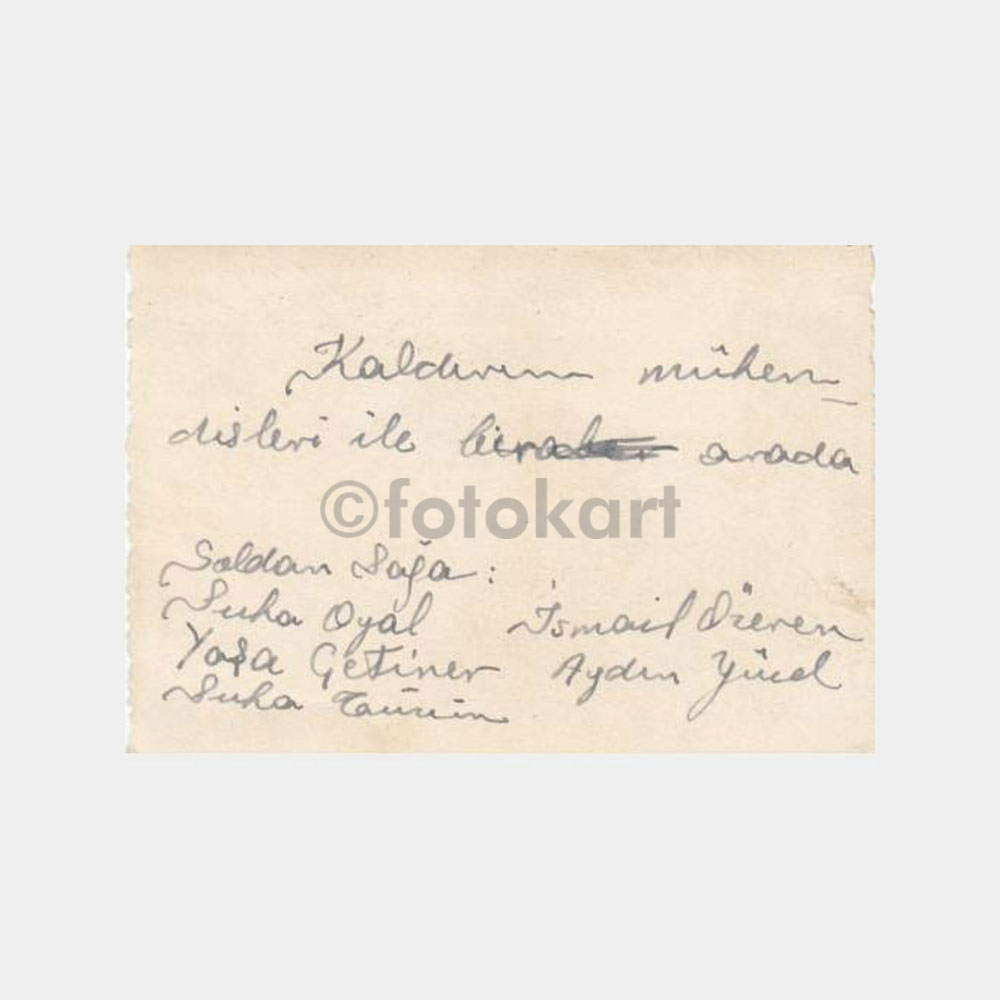 Kaldırım mühen-
disleri ile bir arada
©fotokart
Soldan Sağa :
Suha Oyal İsmail Özeren
Yaşa Çetiner Aydın Yücel
Suha